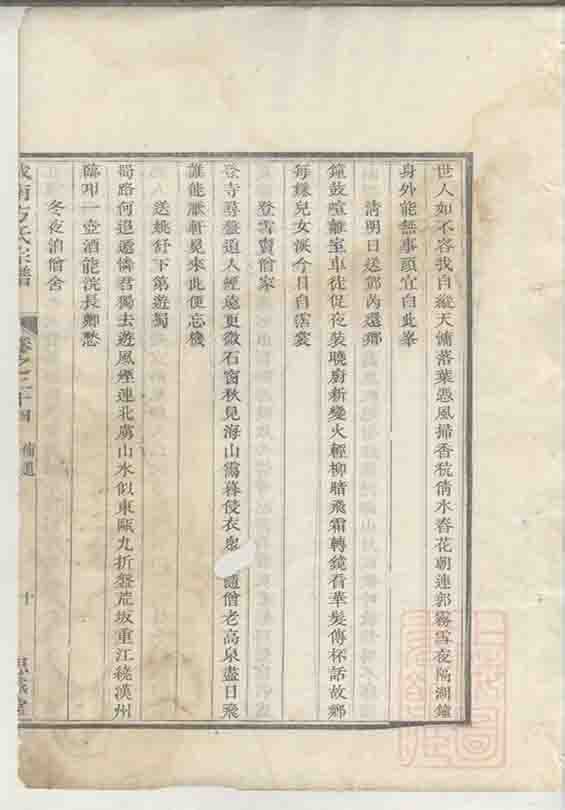 世人如不容我自縱天慵落葉憑風掃香秔倩水舂花朝連郭霧雪夜隔湖鐘
身外能無事頭宜白此峯
清明日送鄧芮還鄉
鐘鼓喧離室車徒促夜裝曉廚新變火輕柳暗飛霜轉鏡看華髮傳杯話故鄉
每嫌兒女淚今日自霑裳
登雪竇僧家
登寺尋盤道人經遠更微石窗秋見海山靄暮侵衣衆 隨僧老高泉盡日飛
誰能厭軒冕來此便忘機
送姚舒下第遊蜀
蜀路何迢遞憐君獨去遊風煙連北虜山水似東甌九折盤荒坂重江繞漢州
臨卭一壺酒能浣長卿愁
冬夜泊僧舍
南方氏宗譜 卷之二十四 補遺 十